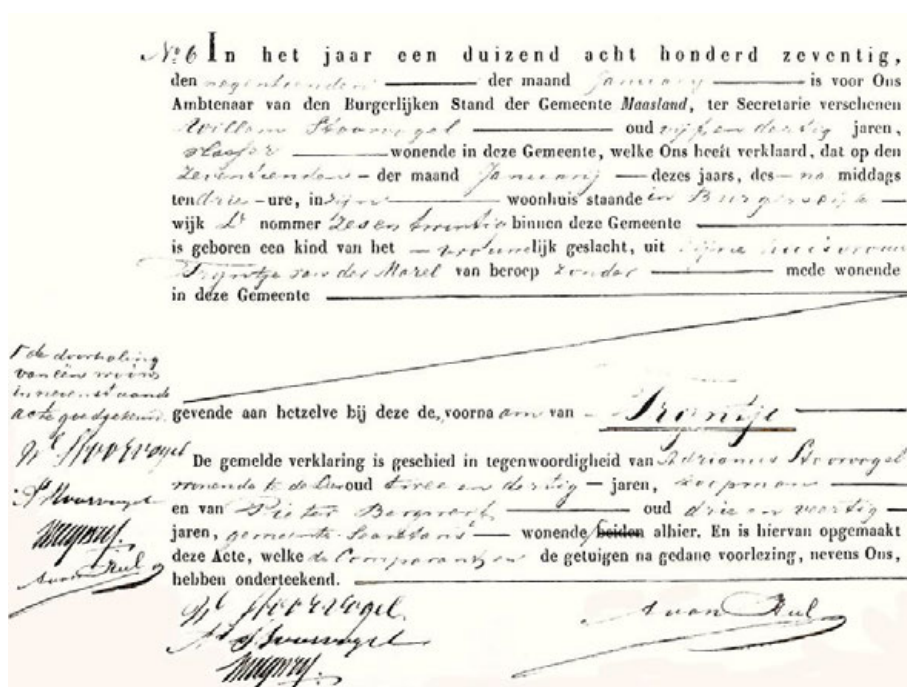 No. 6 In het jaar een duizend acht honderd zeventig,
den negentienden der maand January is voor Ons
Ambtenaar van den Burgerlijken Stand der Gemeente Maasland, ter Secretarie verschenen
Willem Stoorvogel oud vijf en dertig jaren,
wonende in deze Gemeente, welke Ons heeft verklaard, dat op den
zeventienden der maand January dezes jaars, des na middags
ten drie ure, in zijn woonhuis staande in Burgersdijk
wijk Lr nommer zesentwintig binnen deze Gemeente
is geboren een kind van het vrouwelijk geslacht, uit zijne huisvrouw
Trijntje van der Marel van beroep zonder mede wonende
in deze Gemeente
de doorhaling
van één woord
in nevenstaande
acte goedgekeurd.
gevende aan hetzelve bij deze de, voornaam van
W Stoorvogel
De gemelde verklaring is geschied in tegenwoordigheid van Adrianus Stoorvogel
wonende te de Lier oud twee en dertig jaren, koopman
A Stoorvogel
en van Pieter oud drie en veertig
jaren, gemeente wonende beiden alhier. En is hiervan opgemaakt
A van Hul
deze Acte, welke de Comparanten de getuigen na gedane voorlezing, nevens Ons,
hebben onderteekend.
W Stoorvogel
A Stoorvogel
A van Hul